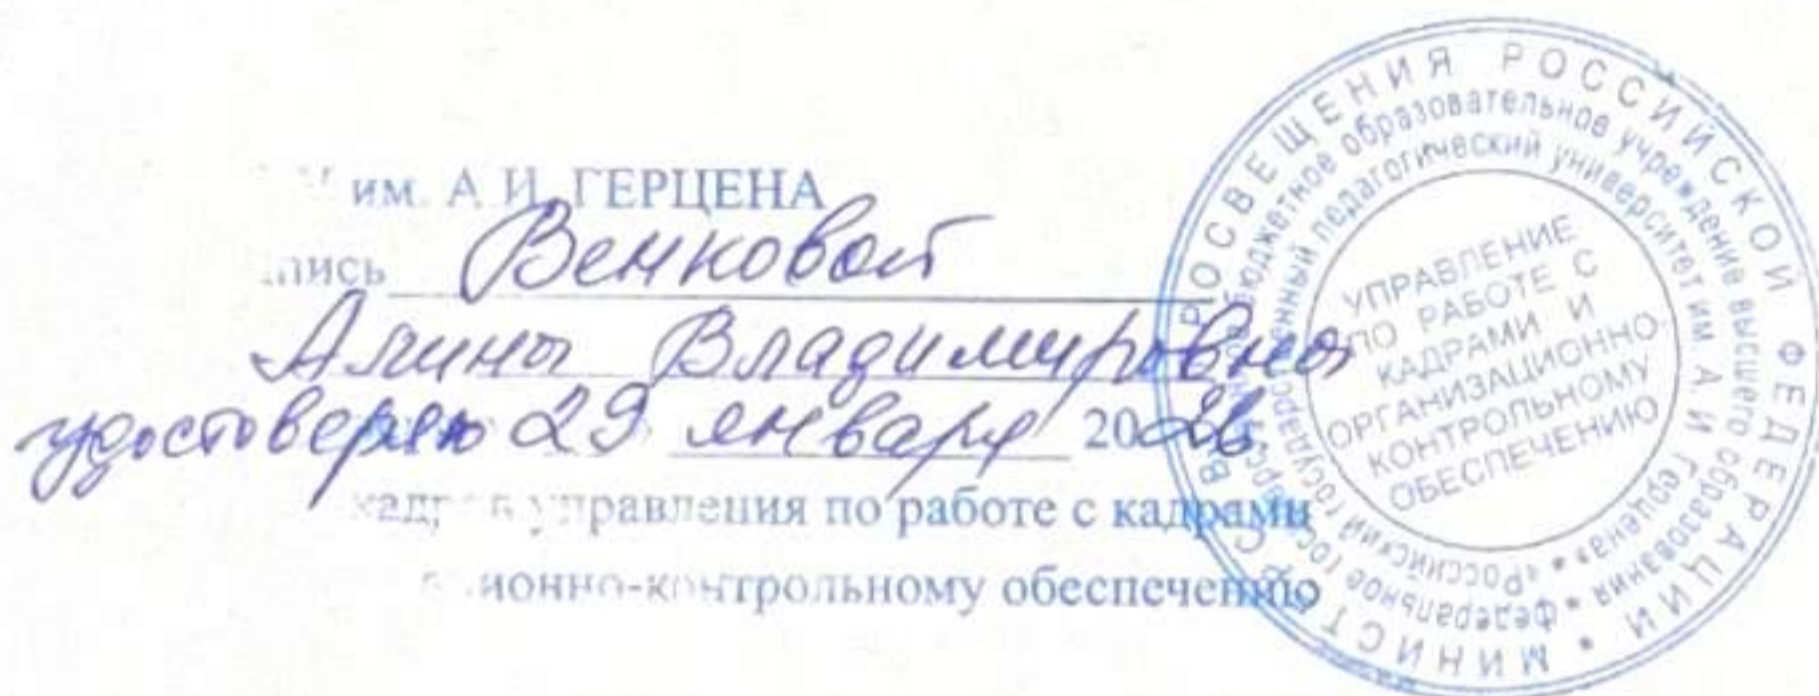 им. А.И. ГЕРЦЕНА
пись Венковой
Алины Владимировны
удостоверяю 29 января 2026
управления по работе с кадрами
ионно-контрольному обеспечению
МИНИСТЕРСТВО ПРОСВЕЩЕНИЯ РОССИЙСКОЙ ФЕДЕРАЦИИ
федеральное государственное бюджетное образовательное учреждение высшего образования
«Российский государственный педагогический университет им. А.И. Герцена»
УПРАВЛЕНИЕ
ПО РАБОТЕ С
КАДРАМИ И
ОРГАНИЗАЦИОННО-
КОНТРОЛЬНОМУ
ОБЕСПЕЧЕНИЮ